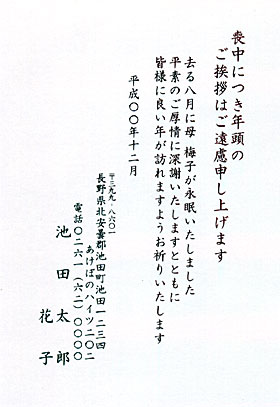 喪中につき年頭の
ご挨拶はご遠慮申し上げます
去る八月に母 梅子が永眠いたしました
平素のご厚情に深謝いたしますとともに
皆様に良い年が訪れますようお祈りいたします
平成〇〇年十二月
〒三九九‐八六〇一
長野県北安曇郡池田町池田一二三四
あけぼのハイツ二〇二
電話〇二六一(六二)〇〇〇〇
池田太郎
花子